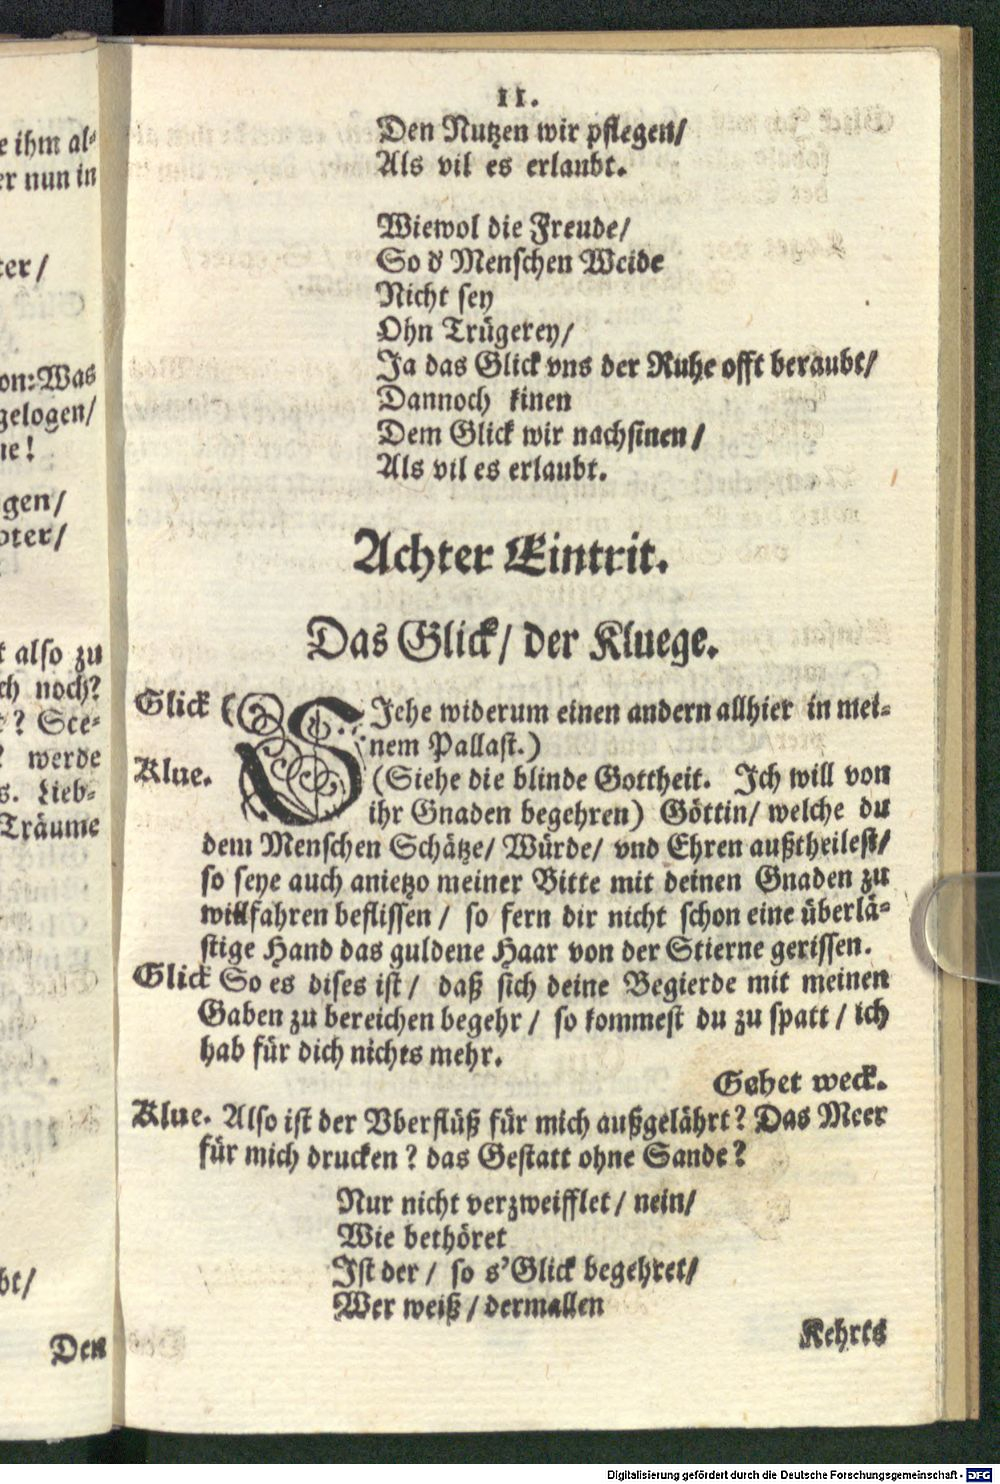 e ihm al-
er nun in
ter/
on: Was
gelogen/
ne!
gen/
pter/
t also zu
ch noch?
e? Sce-
? werde
s. Lieb-
Träume
bt/
Den
11.
Den Nutzen wir pflegen/
Als vil es erlaubt.
Wiewol die Freude/
So d' Menschen Weide
Nicht sey
Ohn Trügerey/
Ja das Glick vns der Ruhe offt beraubt/
Dannoch kinen
Dem Glick wir nachsinen/
Als vil es erlaubt.
Achter Eintrit.
Das Glick/ der Kluege.
Glick (SIehe widerum einen andern allhier in mei-
nem Pallast.)
Klue. (Siehe die blinde Gottheit. Ich will von
ihr Gnaden begehren) Göttin/ welche du
dem Menschen Schätze/ Würde/ vnd Ehren außtheilest/
so seye auch anietzo meiner Bitte mit deinen Gnaden zu
willfahren beflissen/ so fern dir nicht schon eine überlä-
stige Hand das guldene Haar von der Stierne gerissen.
Glick So es dises ist/ daß sich deine Begierde mit meinen
Gaben zu bereichen begehr/ so kommest du zu spatt/ ich
hab für dich nichts mehr.
Gehet weck.
Klue. Also ist der Vberflüß für mich außgelährt? Das Meer
für mich drucken? das Gestatt ohne Sande?
Nur nicht verzweifflet/ nein/
Wie bethöret
Ist der/ so s'Glick begehret/
Wer weiß/ dermallen
Kehrts
Digitalisierung gefördert durch die Deutsche Forschungsgemeinschaft - DFG